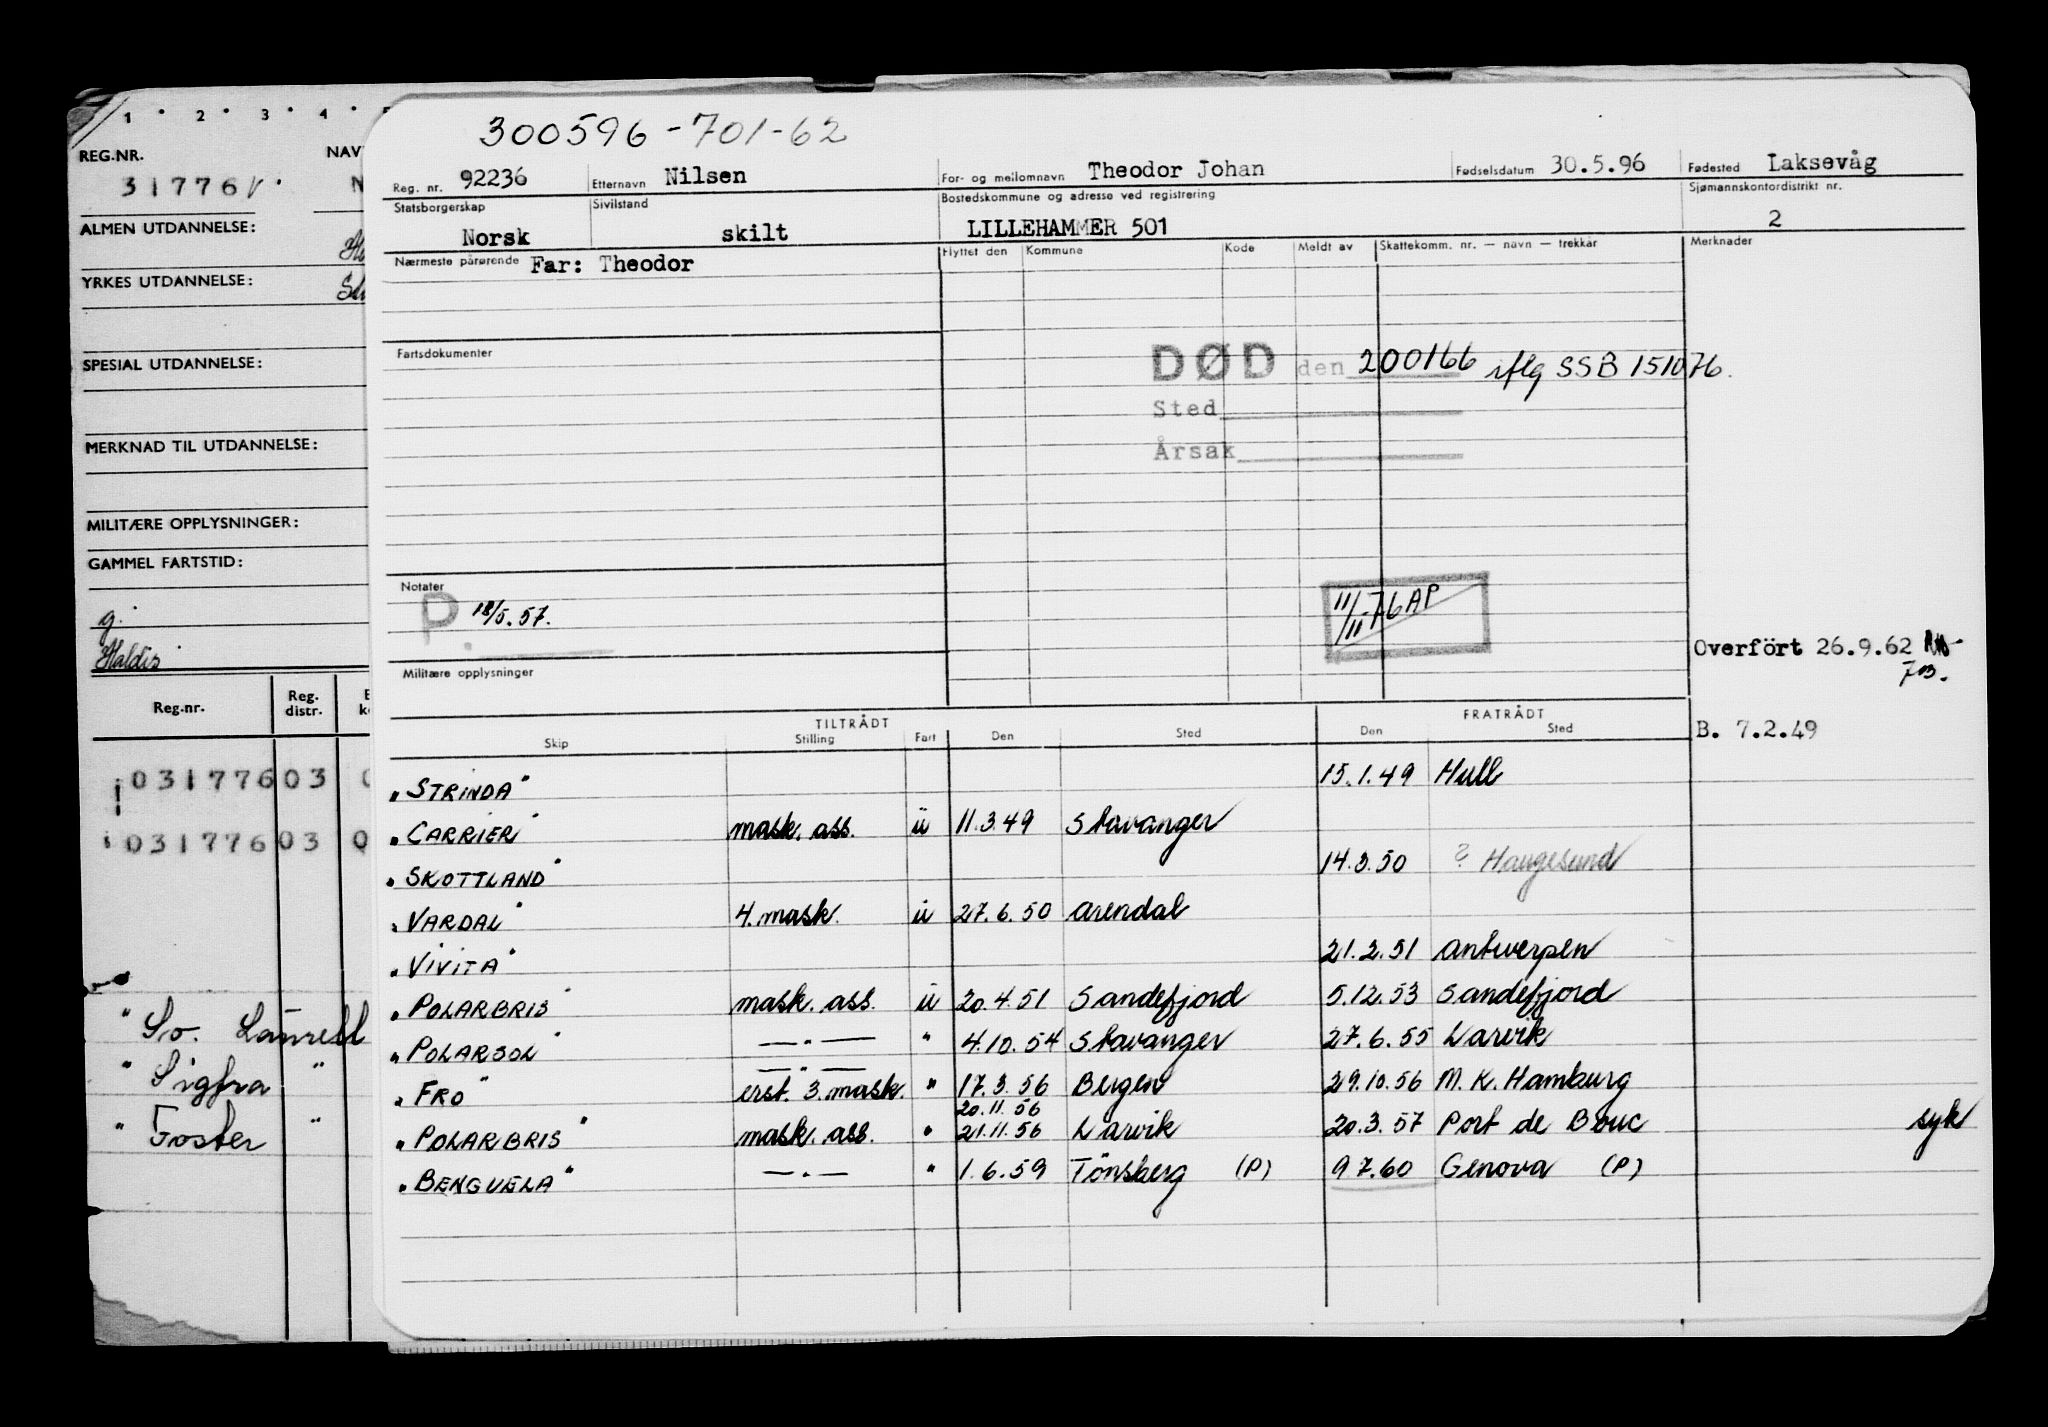 300596-701-62
Reg. nr. 92236 Etternavn Nilsen For- og mellomnavn Theodor Johan Fødselsdatum 30.5.96 Fødested Laksevåg
Statsborgerskap Sivilstand Bostedskommune og adresse ved registrering Sjømannskontordistrikt nr.
Norsk skilt LILLEHAMMER 501 2
Nærmeste pårørende Far: Theodor Flyttet den Kommune Kode Meldt av Skattekomm. nr. — navn — trekkår Merknader
Fartsdokumenter
DØD den 200166 iflg SSB 151076.
Sted
Årsak
Notater
P. 18/5.57.
11/11-76 AP
Overfört 26.9.62
Militære opplysninger
TILTRÅDT FRATRÅDT
Skip Stilling Fart Den Sted Den Sted
B. 7.2.49
"STRINDA" 15.1.49 Hull
"CARRIER" mask. ass. ü 11.3.49 Stavanger
"SKOTTLAND" 14.3.50 ? Haugesund
"VARDAL" 4. mask. ü 27.6.50 Arendal
"VIVITA" 21.2.51 Antwerpen
"POLARBRIS" mask. ass. ü 20.4.51 Sandefjord 5.12.53 Sandefjord
"POLARSOL" —"— " 4.10.54 Stavanger 27.6.55 Larvik
—"—
"FRO" erst. 3. mask. " 17.3.56 Bergen 29.10.56 M.K. Hamburg
20.11.56
"POLARBRIS" mask. ass. " 21.11.56 Larvik 20.3.57 Port de Bouc syk
"BENGUELA" —"— " 1.6.59 Tönsberg (P) 9.7.60 Genova (P)
1 2 3 4
REG.NR. NAV
31776
ALMEN UTDANNELSE:
YRKES UTDANNELSE:
SPESIAL UTDANNELSE:
MERKNAD TIL UTDANNELSE:
MILITÆRE OPPLYSNINGER:
GAMMEL FARTSTID:
g.
Haldis
Reg.nr. Reg. distr.
031776 03
031776 03
" So. Laurell
" Sigfra "
" Foster "